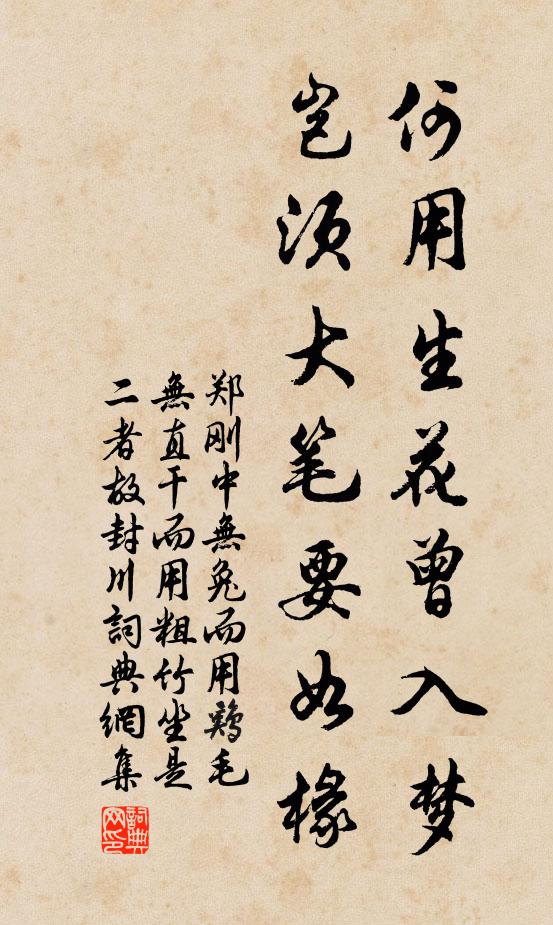 何用生花曾入梦
岂须大笔要如椽
郑刚中無兔而用鶏毛
無直干而用粗竹坐是
二者故封川詞典網集
詞典
网印